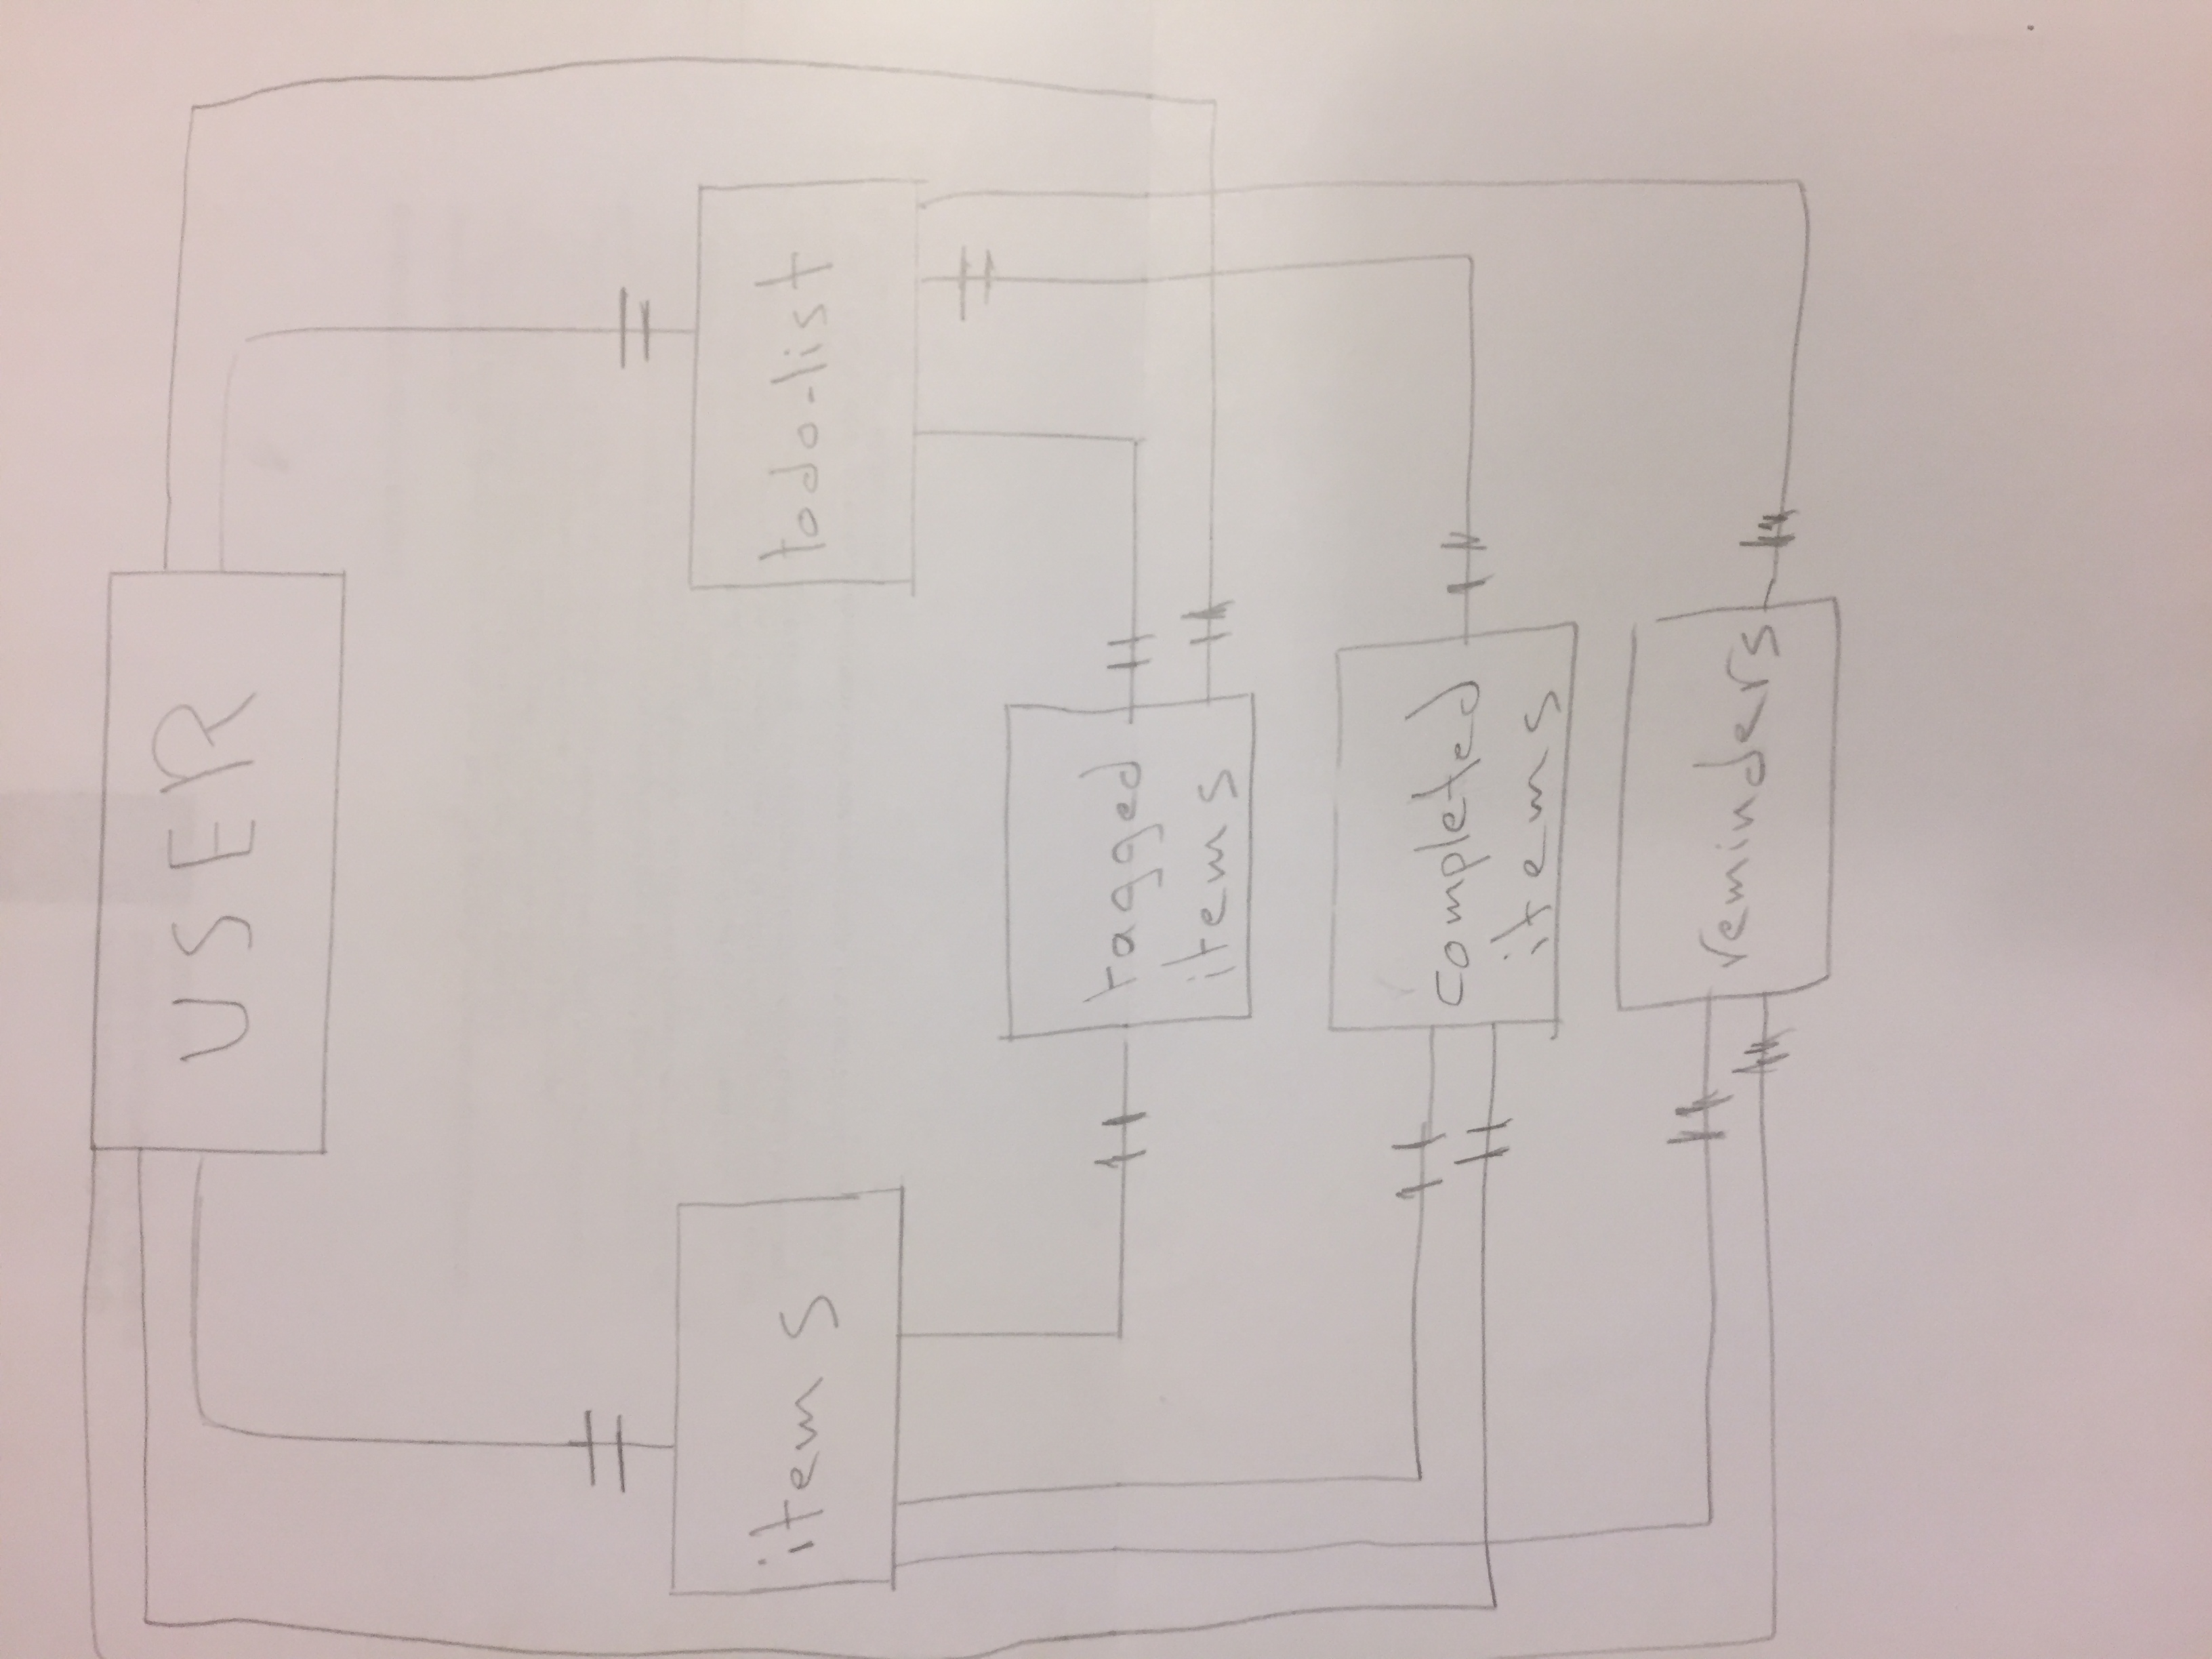 USER
items
todo-list
tagged
items
completed
items
reminders